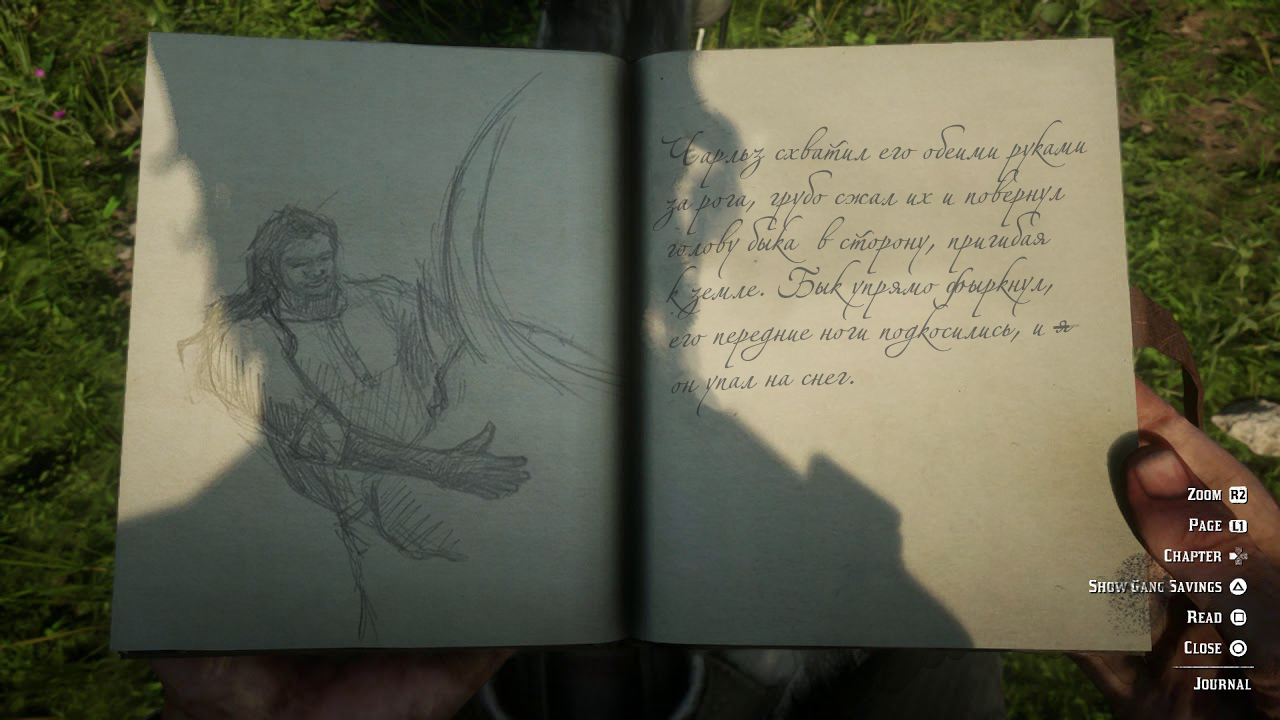 Чарльз схватил его обеими руками
за рога, грубо сжал их и повернул
голову быка в сторону, пригибая
к земле. Бык упрямо фыркнул,
его передние ноги подкосились, и я
он упал на снег.
ZOOM R2
PAGE L1
CHAPTER
SHOW GANG SAVINGS
READ
CLOSE
JOURNAL